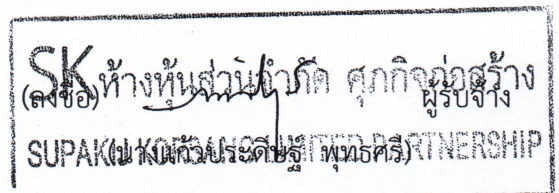 SK ห้างหุ้นส่วนจำกัด ศุภกิจก่อสร้าง
(ลงชื่อ) ผู้รับจ้าง
SUPAKIJ KORSANG LIMITED PARTNERSHIP
(นางแก้วประดิษฐ์ พุทธศรี)